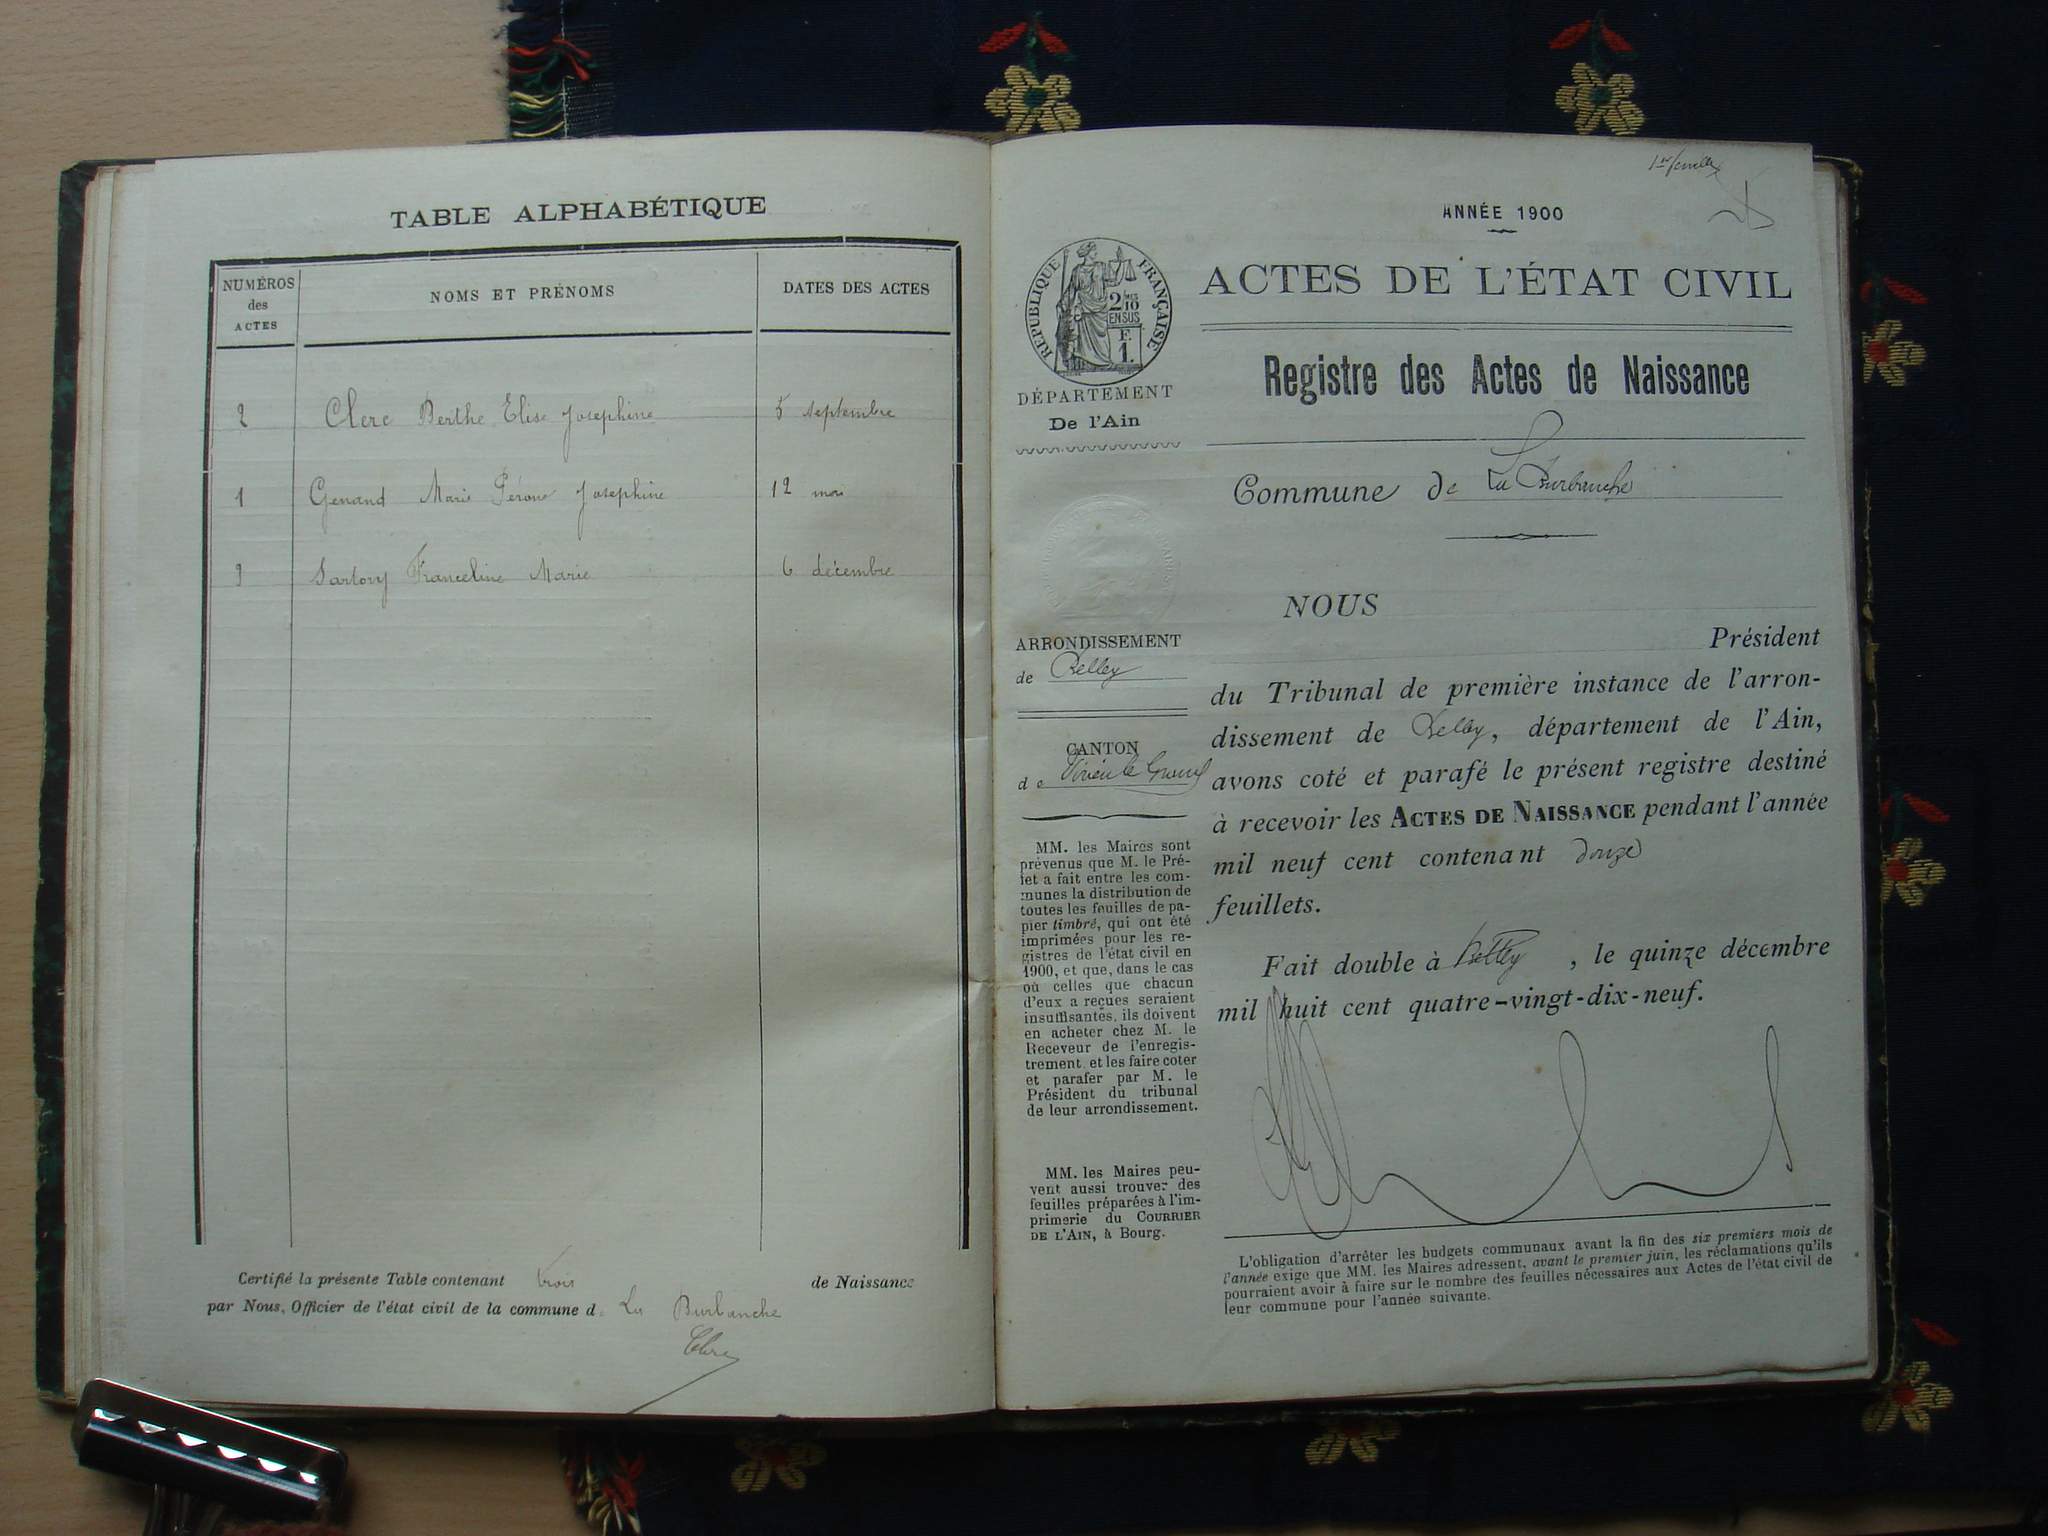 TABLE ALPHABÉTIQUE
NUMÉROS
des
ACTES
NOMS ET PRÉNOMS
DATES DES ACTES
2 Clerc Berthe Elise Josephine 5 septembre
1 Genand Marie Josephine 12
3 Sartory Franceline Marie 6 décembre
Certifié la présente Table contenant trois de Naissance
par Nous, Officier de l'état civil de la commune d La Burbanche
Clerc
1er feuillet
ANNÉE 1900
RÉPUBLIQUE FRANÇAISE
2 10MES
EN SUS
F.
1.
ACTES DE L'ÉTAT CIVIL
Registre des Actes de Naissance
DÉPARTEMENT
De l'Ain
Commune de La Burbanche
ARRONDISSEMENT
de Belley
CANTON
de Virieu le Grand
MM. les Maires sont
prévenus que M. le Pré-
fet a fait entre les com-
munes la distribution de
toutes les feuilles de pa-
pier timbré, qui ont été
imprimées pour les re-
gistres de l'état civil en
1900, et que, dans le cas
où celles que chacun
d'eux a reçues seraient
insuffisantes, ils doivent
en acheter chez M. le
Receveur de l'enregis-
trement et les faire coter
et parafer par M. le
Président du tribunal
de leur arrondissement.
MM. les Maires peu-
vent aussi trouver des
feuilles préparées à l'im-
primerie du COURRIER
DE L'AIN, à Bourg.
NOUS
Président
du Tribunal de première instance de l'arron-
dissement de Belley, département de l'Ain,
avons coté et parafé le présent registre destiné
à recevoir les ACTES DE NAISSANCE pendant l'année
mil neuf cent contenant douze
feuillets.
Fait double à Belley, le quinze décembre
mil huit cent quatre-vingt-dix-neuf.
L'obligation d'arrêter les budgets communaux avant la fin des six premiers mois de
l'année exige que MM. les Maires adressent, avant le premier juin, les réclamations qu'ils
pourraient avoir à faire sur le nombre des feuilles nécessaires aux Actes de l'état civil de
leur commune pour l'année suivante.